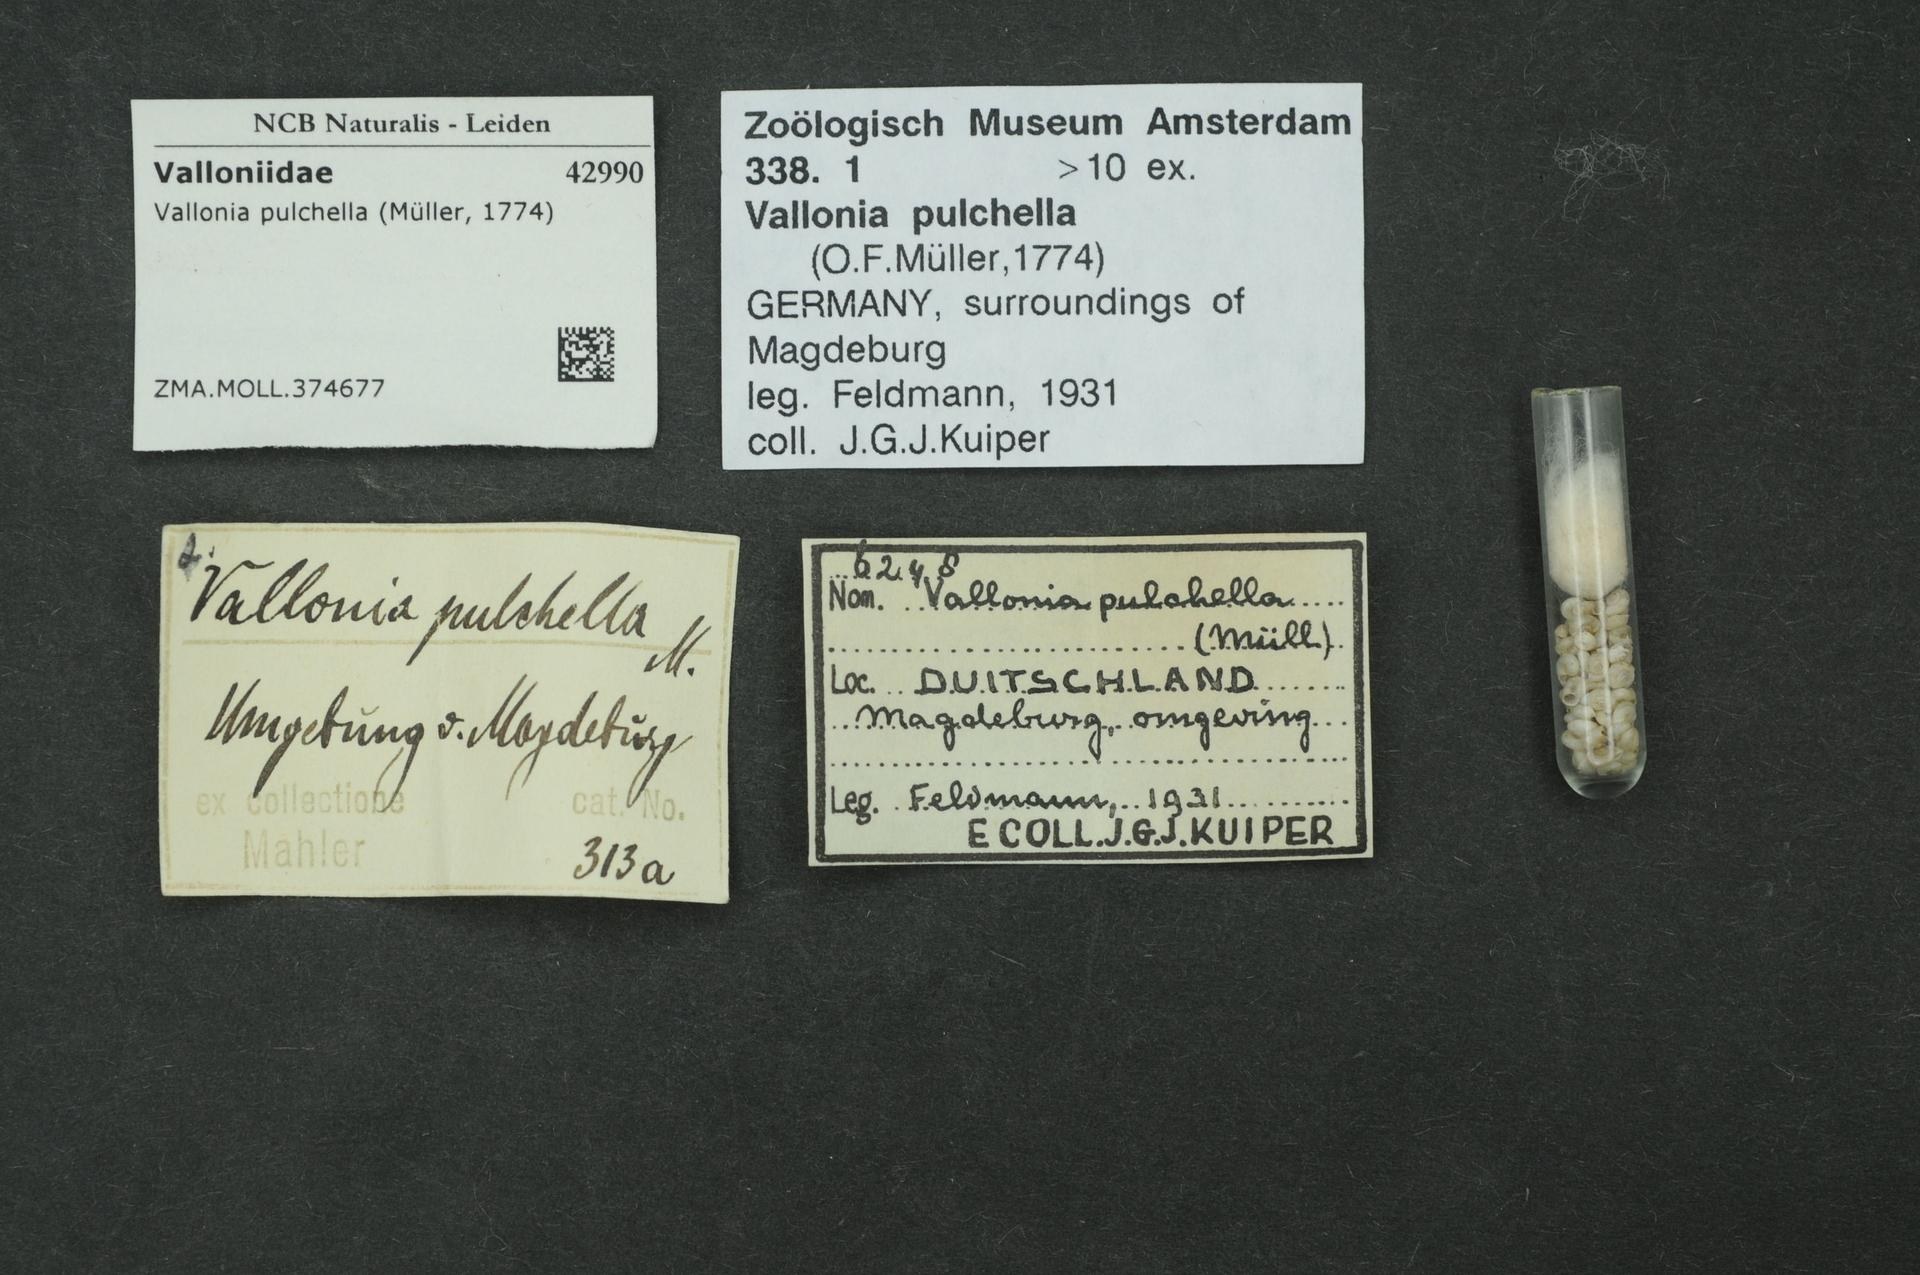 NCB Naturalis - Leiden
Valloniidae 42990
Vallonia pulchella (Müller, 1774)
ZMA.MOLL.374677
Zoölogisch Museum Amsterdam
338. 1 >10 ex.
Vallonia pulchella
(O.F.Müller,1774)
GERMANY, surroundings of
Magdeburg
leg. Feldmann, 1931
coll. J.G.J.Kuiper
Vallonia pulchella
M.
Umgebung v. Magdeburg
ex collectione cat. No.
Mahler 313a
6248
Nom. Vallonia pulchella
(Müll).
Loc. DUITSCHLAND
Magdeburg, omgeving
Leg. Feldmann, 1931
E COLL. J.G.J. KUIPER